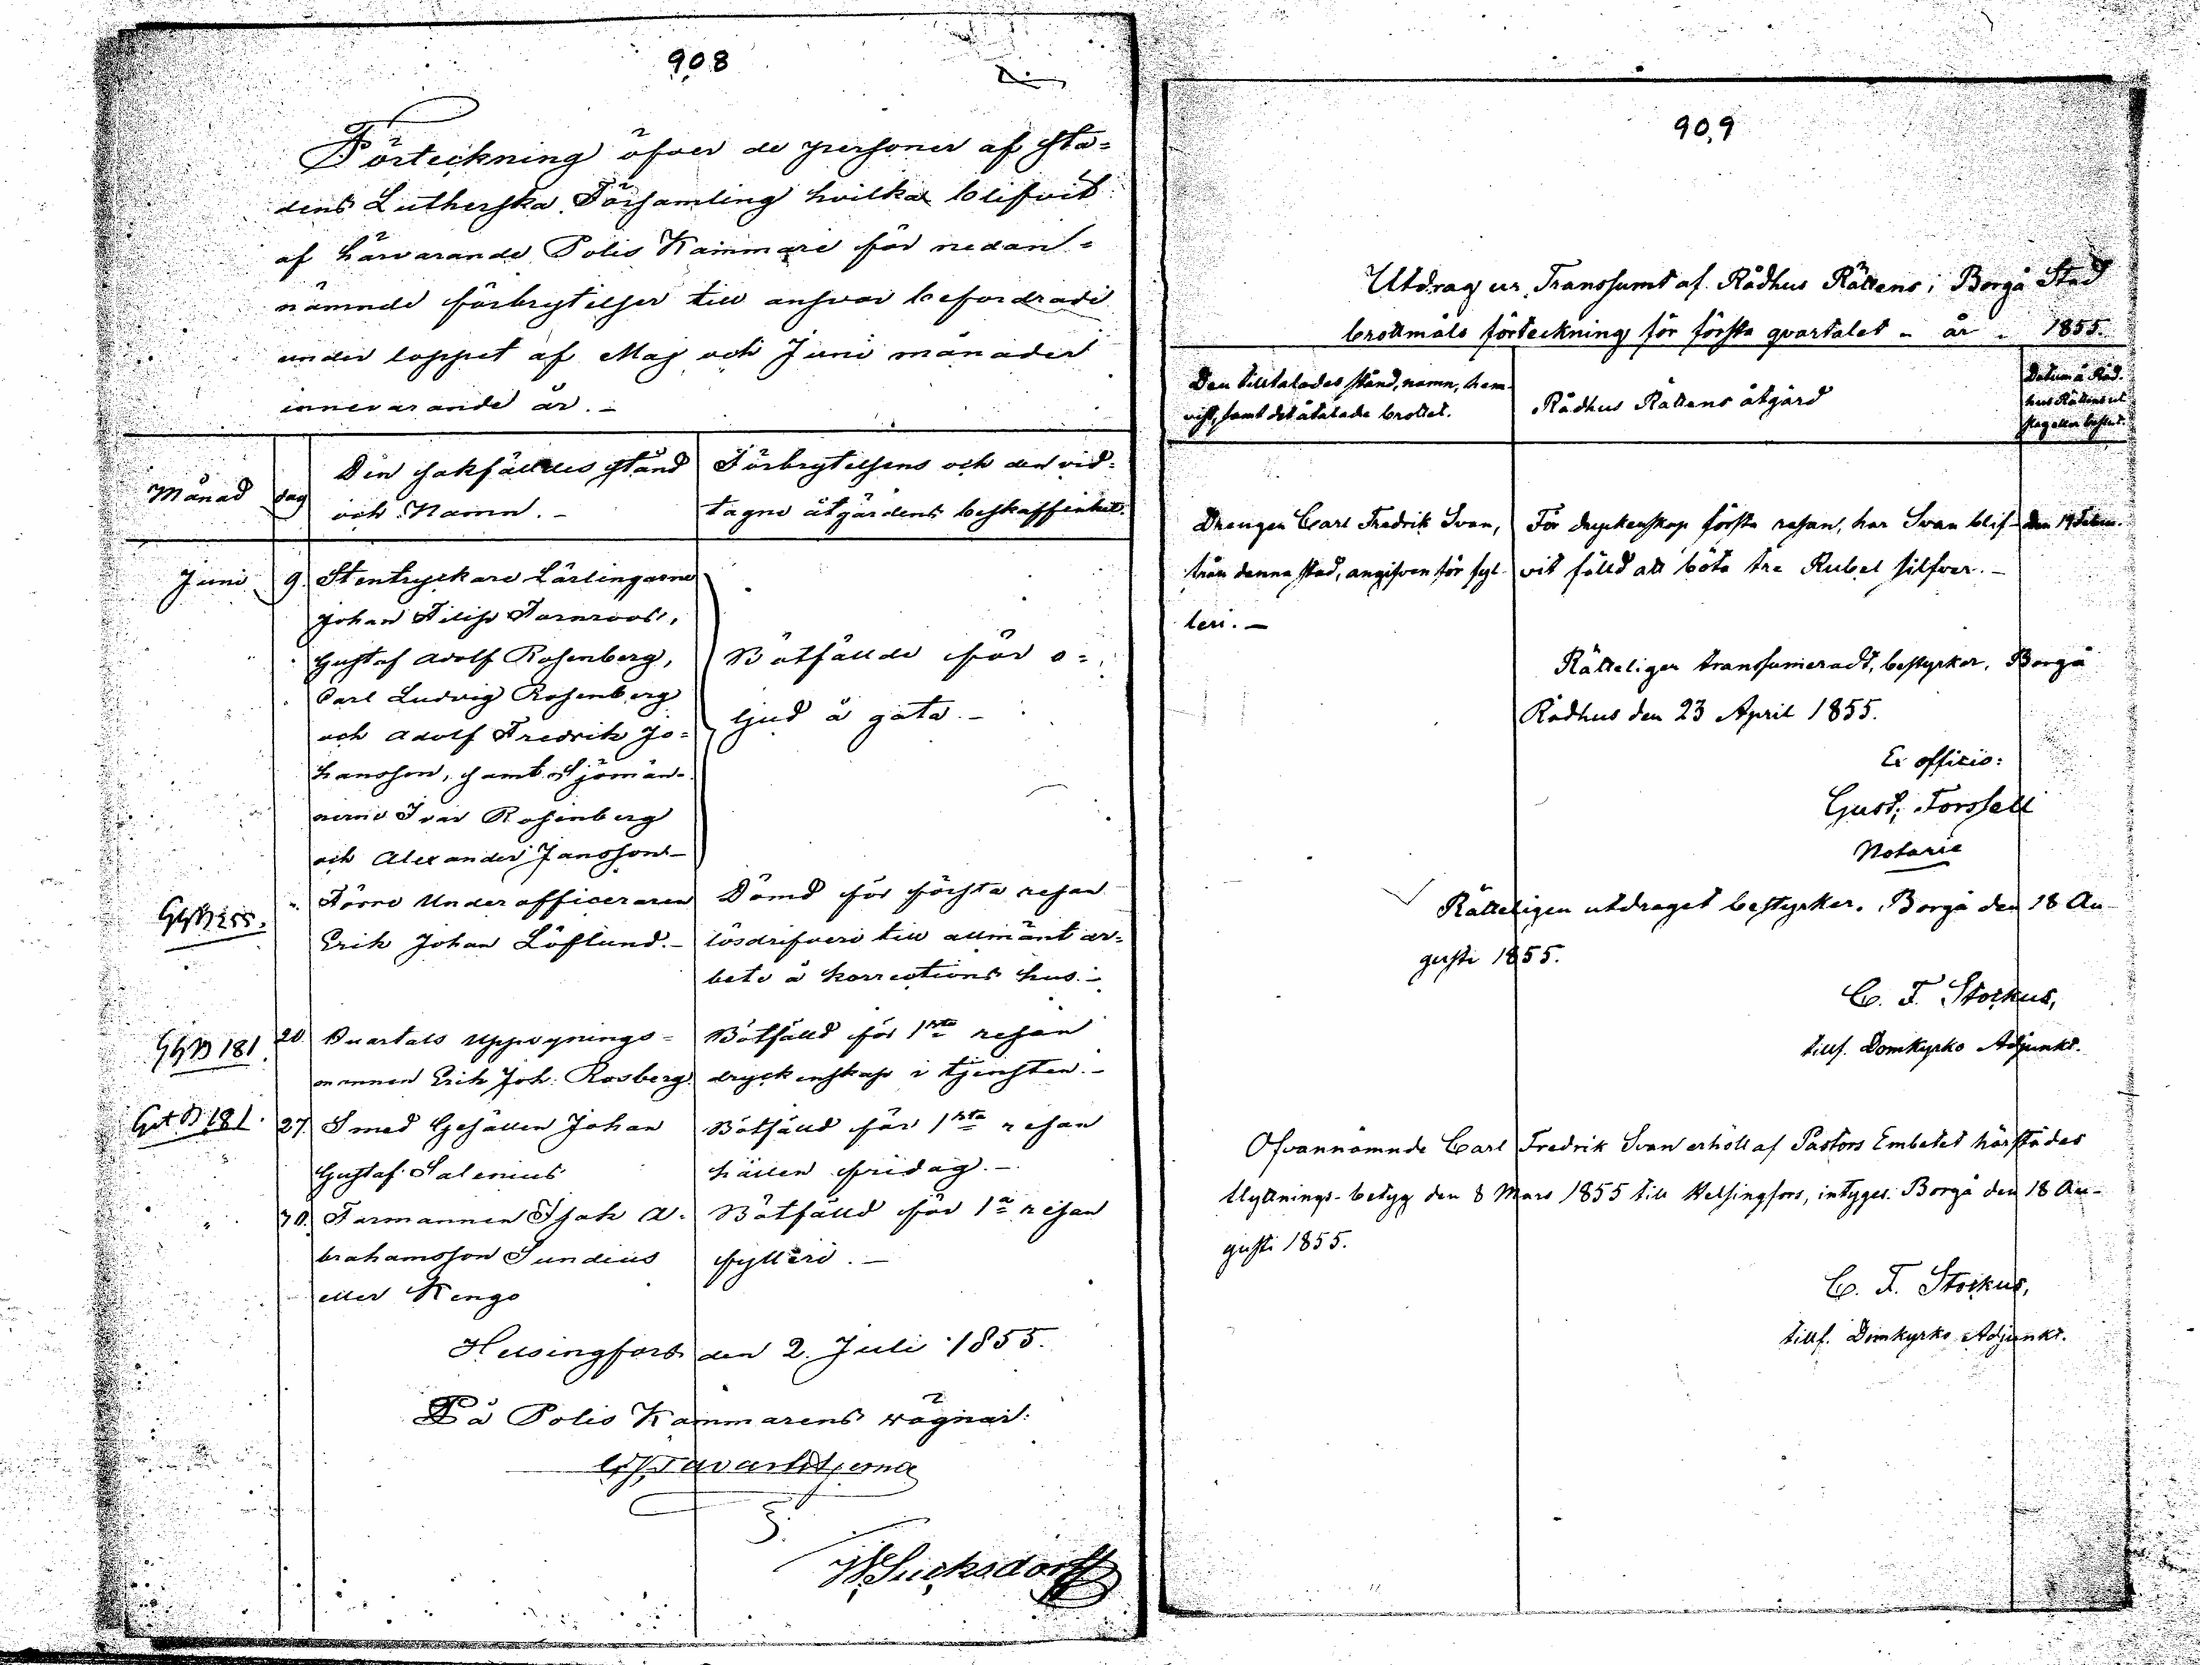 908
Förteckning öfver de personer af sta=
dens Lutherska Församling hvilka blifvit
af härvarande Polis Kammare för nedan=
nämnde förbrytelser till ansvar befordrade
under loppet af Maj och Juni månader
innevarande år.-
Månad
dag
Den sakfälldes stånd
och Namn.-
Förbrytelsens och den vid=
tagne åtgärdens beskaffenhet.
Juni
9.
Stentryckare Lärlingarne
Johan Filip Tornroos,
Gustaf Adolf Rosenberg,
Carl Ludvig Rosenberg
och Adolf Fredrik Jo=
hansson, samt Sjömän-
nerne Ivar Rosenberg
och Alexander Jansson-
Bötfällde för o=
ljud å gata.-
Förre Underofficeraren
Erik Johan Löflund.-
Dömd för första resan
lösdrifveri till allmänt ar=
bete å korrections hus.-
GGB 181.
20.
Quartals Uppsynings=
mannen Erik Joh: Rosberg.
Bötfälld för 1sta resan
dryckenskap i tjensten.-
Get B 181.
27.
Smed Gesällen Johan
Gustaf Salenius
Bötfälld för 1sta resan
hållen fridag.-
30.
Formannen Isak A-
brahamsson Sundius
eller Kengo
Bötfälld för 1a resan
fylleri.-
Helsingfors den 2. Juli 1855.
På Polis Kammarens vägnar:
W Sucksdorff
909
Utdrag ur Transsumt af Rådhus Rättens i Borgå Stad
brottmåls förteckning för första qvartalet - år - 1855.
Den tilltalades stånd, namn, hem-
vist, samt det åtalade brottet.
Rådhus Rättens åtgärd
Datum å Råd-
hus Rättens ut
slag eller beslut.
Drengen Carl Fredrik Svan,
från denna stad, angifven för fyl-
leri.-
För dryckenskap första resan, har Svan blif-
vit fälld att böta tre Rubel silfver.-
den 19 Febru.
Rätteligen transsumeradt, bestyrker, Borgå
Rådhus den 23 April 1855.
Ex officio:
Gust: Forssell
Notarie
Rätteligen utdraget bestyrker. Borgå den 18 Au-
gusti 1855.
C. F. Storkus,
tillf. Domkyrko Adjunkt.
Ofvannämnde Carl Fredrik Svan erhöll af Pastors Embetet härstädes
flyttnings-betyg den 8 Mars 1855 till Helsingfors, intygas. Borgå den 18 Au-
gusti 1855.
C. F. Storkus,
tillf. Domkyrko Adjunkt.